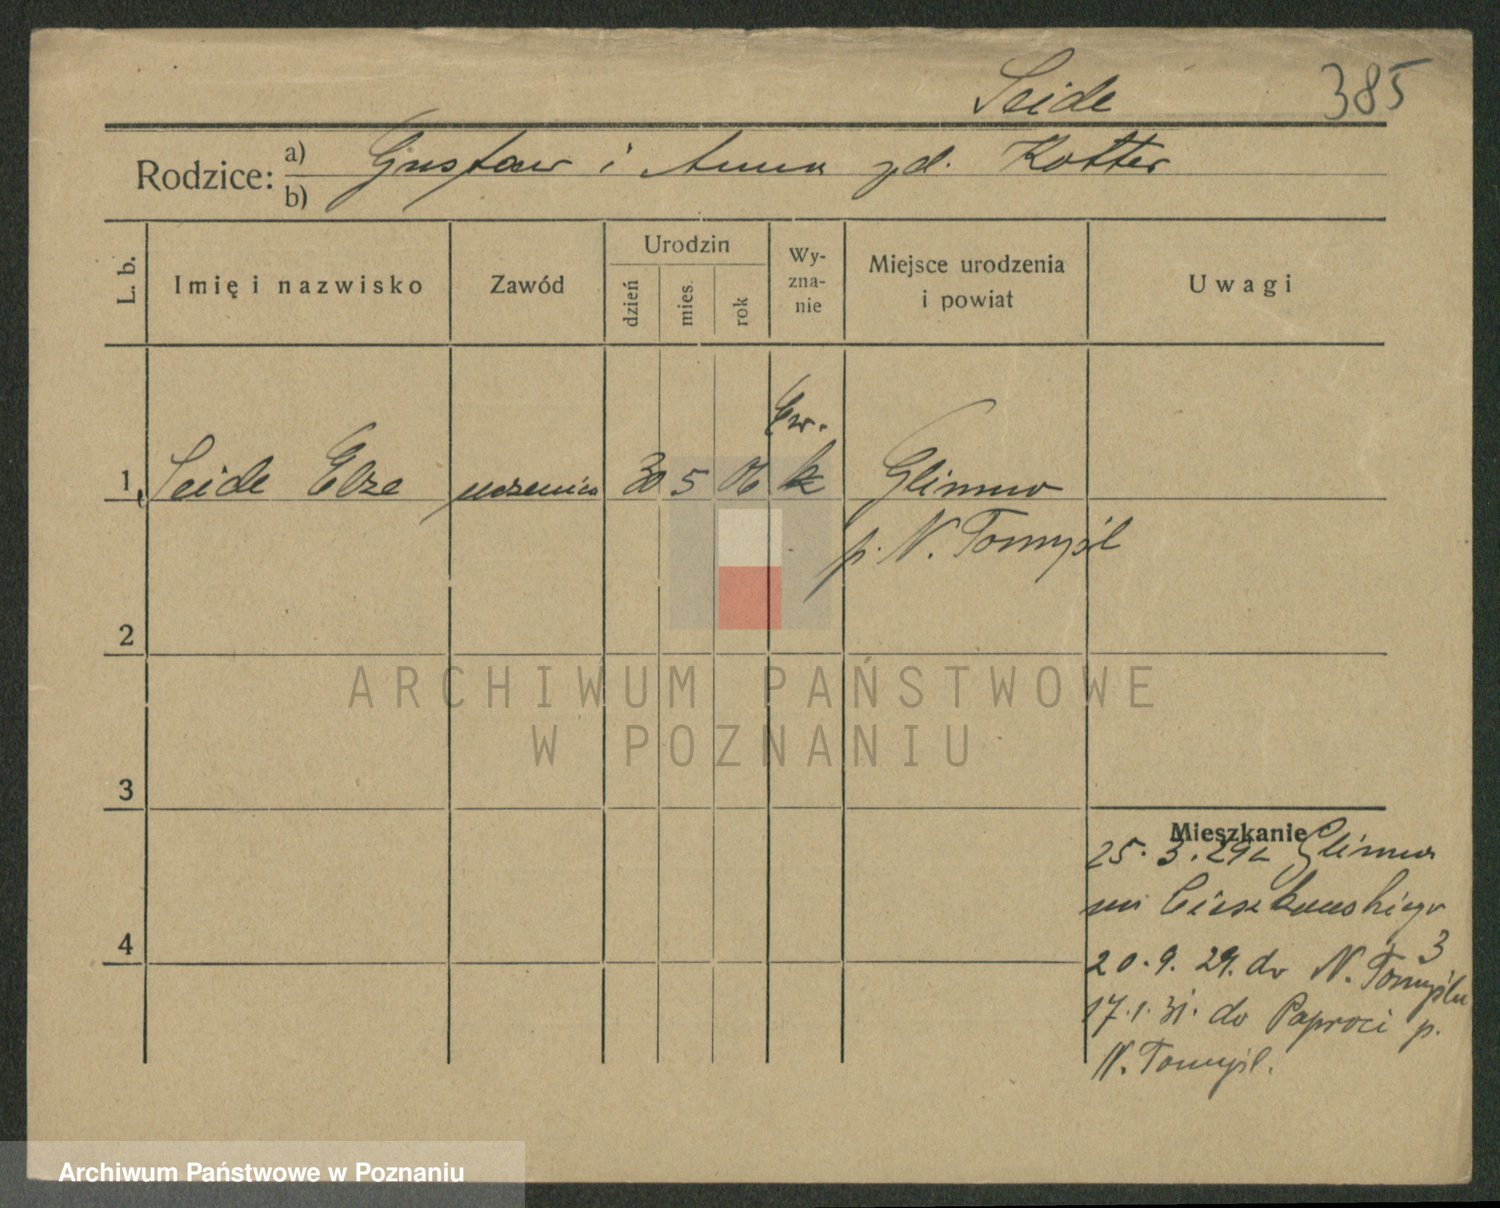 Seide 385
Rodzice: a) Gustaw i Anna zd. Kotter
b)
L. b. Imię i nazwisko Zawód Urodzin dzień mies. rok Wy-zna-nie Miejsce urodzenia i powiat Uwagi
Ew.
1 Seide Elze uczenica 30 5 06 k Glinno
p. N. Tomyśl
2
ARCHIWUM PAŃSTWOWE
W POZNANIU
3
Mieszkanie
25. 3. 29 z Glinna
na Cieszkowskiego
3
4
20. 9. 29. do N. Tomyślu
17. 1. 31. do Paproci p.
N. Tomyśl.
Archiwum Państwowe w Poznaniu